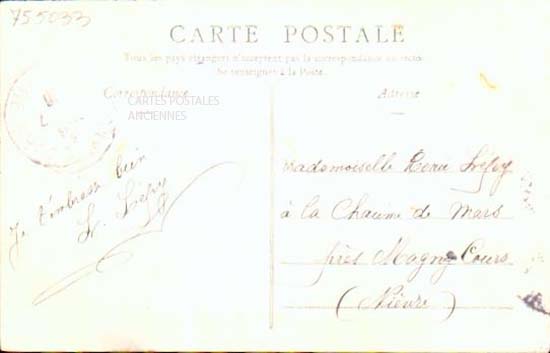 755033
CARTE POSTALE
Tous les pays étrangers n'acceptent pas la correspondance au recto
Se renseigner à la Poste.
Correspondance
Adresse
CARTES POSTALES
ANCIENNES
Je t'embrasse bien
Mademoiselle
à la Chaume de Mars
près Magny Cours
(Nièvre)